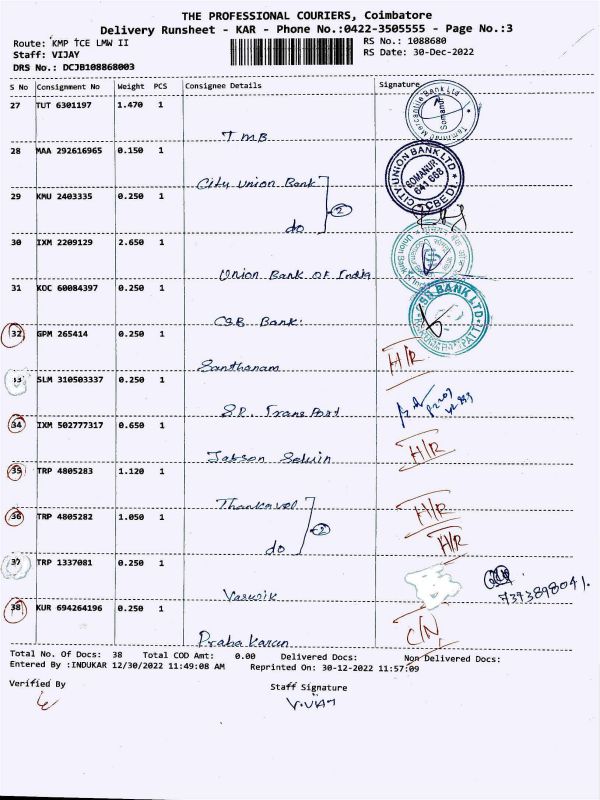 THE PROFESSIONAL COURIERS, Coimbatore
Delivery Runsheet - KAR - Phone No.:0422-3505555 - Page No.:3
Route: KMP TCE LMW II RS No.: 1088680
Staff: VIJAY RS Date: 30-Dec-2022
DRS No.: DCJB108868003
S No Consignment No Weight PCS Consignee Details Signature
27 TUT 6301197 1.470 1
Tamilnad Mercantile Bank Ltd. Somanur
TMB
28 MAA 292616965 0.150 1
CITY UNION BANK LTD SOMANUR 641 668
City Union Bank
29 KMU 2403335 0.250 1
2
do
30 IXM 2209129 2.650 1
Union Bank of India
31 KOC 60084397 0.250 1
CSB BANK LTD
CSB Bank.
32 GPM 265414 0.250 1
H/R
Santhanam
33 SLM 310503337 0.250 1
S.P. Transport
34 IXM 502777317 0.650 1
H/R
Jabson Selvin
35 TRP 4805283 1.120 1
Thankavel
36 TRP 4805282 1.050 1 H/R
2
do H/R
37 TRP 1337081 0.250 1
7373898041.
38 KUR 694264196 0.250 1
C/N
Prabakaran
Total No. Of Docs: 38 Total COD Amt: 0.00 Delivered Docs: Non Delivered Docs:
Entered By :INDUKAR 12/30/2022 11:49:08 AM Reprinted On: 30-12-2022 11:57:09
Verified By Staff Signature